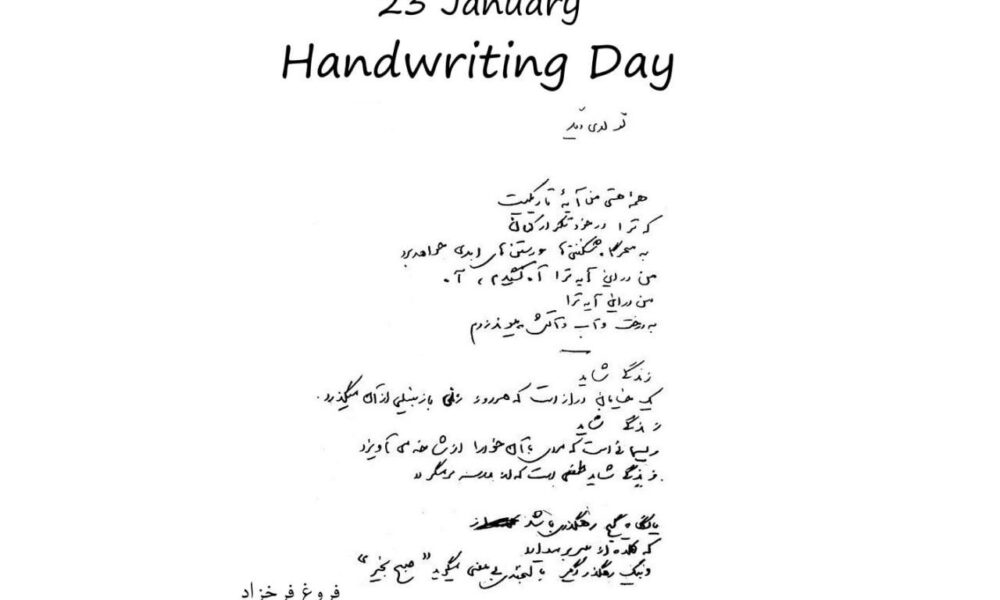 23 January
Handwriting Day
تولدی دیگر
همهٔ هستی من آیهٔ تاریکیست
که ترا در خود تکرار کنان
به سحرگاه شکفتن‌ها و رستن‌های ابدی خواهد برد
من در این آیه ترا آه کشیدم ، آه
من در این آیه ترا
به درخت و آب و آتش پیوند زدم
زندگی شاید
یک خیابان درازست که هر روز زنی با زنبیلی از آن میگذرد.
زندگی شاید
ریسمانی است که مردی با آن خود را از شاخه می آویزد
زندگی شاید طفلی است که از مدرسه برمیگردد.
یا نگاه گیج رهگذری باشد
که کلاه از سر بر میدارد
و بیک رهگذر دیگر با لبخندی بی معنی میگوید "صبح بخیر"
فروغ فرخزاد